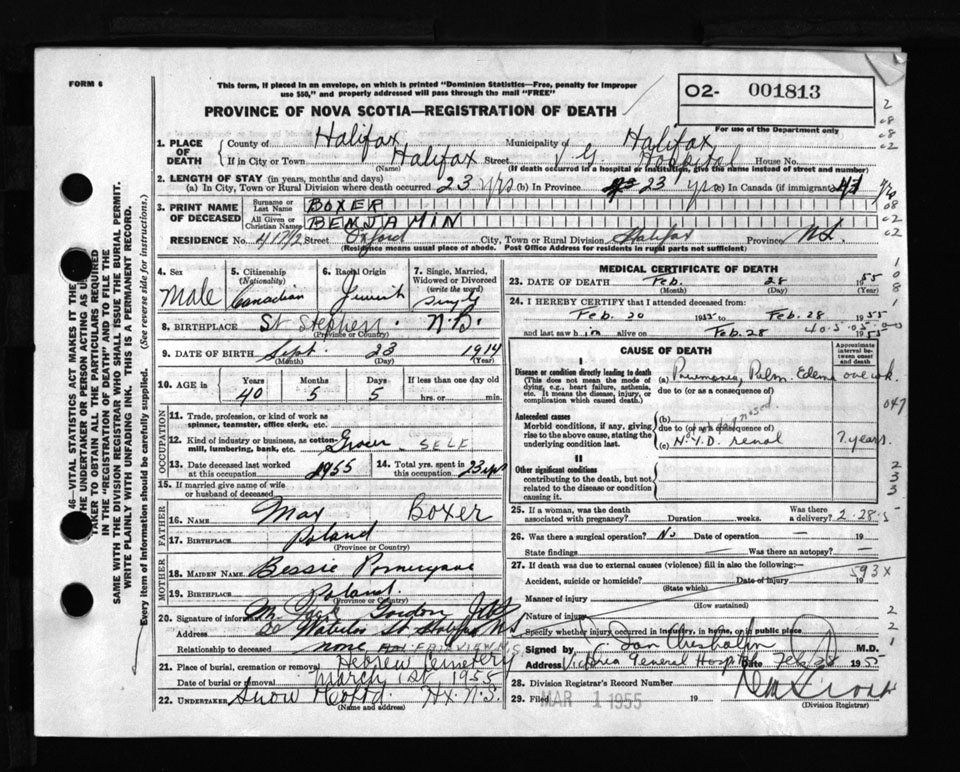 FORM 6
This form, if placed in an envelope, on which is printed "Dominion Statistics—Free, penalty for improper
use $50," and properly addressed will pass through the mail "FREE"
O2- 001813
For use of the Department only
PROVINCE OF NOVA SCOTIA—REGISTRATION OF DEATH
1. PLACE OF DEATH
County of Halifax Municipality of Halifax
If in City or Town Halifax Street V G. Hospital House No.
(Name) (If death occurred in a hospital or institution, give the name instead of street and number)
2. LENGTH OF STAY (in years, months and days)
(a) In City, Town or Rural Division where death occurred 23 yrs (b) In Province 23 yrs (c) In Canada (if immigrant)
3. PRINT NAME OF DECEASED
Surname or Last Name BOXER
All Given or Christian Names BENJAMIN
RESIDENCE No. 417½ Street Oxford City, Town or Rural Division Halifax Province N.S.
Residence means usual place of abode. Post Office Address for residents in rural parts not sufficient)
4. Sex Male
5. Citizenship (Nationality) Canadian
6. Racial Origin Jewish
7. Single, Married, Widowed or Divorced (write the word) Single
8. BIRTHPLACE St Stephen N.B.
9. DATE OF BIRTH Sept. 23 1914
(Month) (Day) (Year)
10. AGE in Years 40 Months 5 Days 5 If less than one day old hrs. or min.
OCCUPATION
11. Trade, profession, or kind of work as spinner, teamster, office clerk, etc.
12. Kind of industry or business, as cotton-mill, lumbering, bank, etc. Grocer SELF
13. Date deceased last worked at this occupation 1955
14. Total yrs. spent in this occupation 23 yrs
15. If married give name of wife or husband of deceased
FATHER
16. NAME Max Boxer
17. BIRTHPLACE Poland
(Province or Country)
MOTHER
18. MAIDEN NAME Bessie
19. BIRTHPLACE Poland.
(Province or Country)
20. Signature of informant Gordon
Address Waterloo St Halifax NS
Relationship to deceased none FAIRVIEW N.S.
21. Place of burial, cremation or removal Hebrew Cemetery
Date of burial or removal March 1st, 1955
22. UNDERTAKER Snow & Co Ltd Hx. N.S.
(Name and address)
MEDICAL CERTIFICATE OF DEATH
23. DATE OF DEATH Feb. 28 1955
(Month) (Day) (Year)
24. I HEREBY CERTIFY that I attended deceased from:
Feb. 20 1955 to Feb. 28 1955
and last saw him alive on Feb. 28 1955
CAUSE OF DEATH
Approximate interval between onset and death
I
Disease or condition directly leading to death
(This does not mean the mode of dying, e.g., heart failure, asthenia, etc. It means the disease, injury, or complication which caused death.)
(a) Pneumonia, Pulm. Edema one wk.
due to (or as a consequence of)
Antecedent causes
Morbid conditions, if any, giving rise to the above cause, stating the underlying condition last.
(b)
due to (or as a consequence of)
(c) N.Y.D. renal 7 years.
II
Other significant conditions
contributing to the death, but not related to the disease or condition causing it.
25. If a woman, was the death associated with pregnancy? Duration weeks. Was there a delivery? 2-28-5
26. Was there a surgical operation? No Date of operation — 19
State findings — Was there an autopsy? —
27. If death was due to external causes (violence) fill in also the following:—
593X
Accident, suicide or homicide? Date of injury 19
(State which)
Manner of injury
(How sustained)
Nature of injury
Specify whether injury occurred in industry, in home, or in public place
Signed by Chisholm M.D.
Address Victoria General Hospital Date Feb. 28 1955
28. Division Registrar's Record Number
29. Filed MAR 1 1955 19
(Division Registrar)
46—VITAL STATISTICS ACT MAKES IT THE
THE UNDERTAKER OR PERSON ACTING AS
TAKER TO OBTAIN ALL THE PARTICULARS REQUIRED
IN THE "REGISTRATION OF DEATH" AND TO FILE THE
SAME WITH THE DIVISION REGISTRAR WHO SHALL ISSUE THE BURIAL PERMIT.
WRITE PLAINLY WITH UNFADING INK. THIS IS A PERMANENT RECORD.
Every item of information should be carefully supplied. (See reverse side for instructions.)